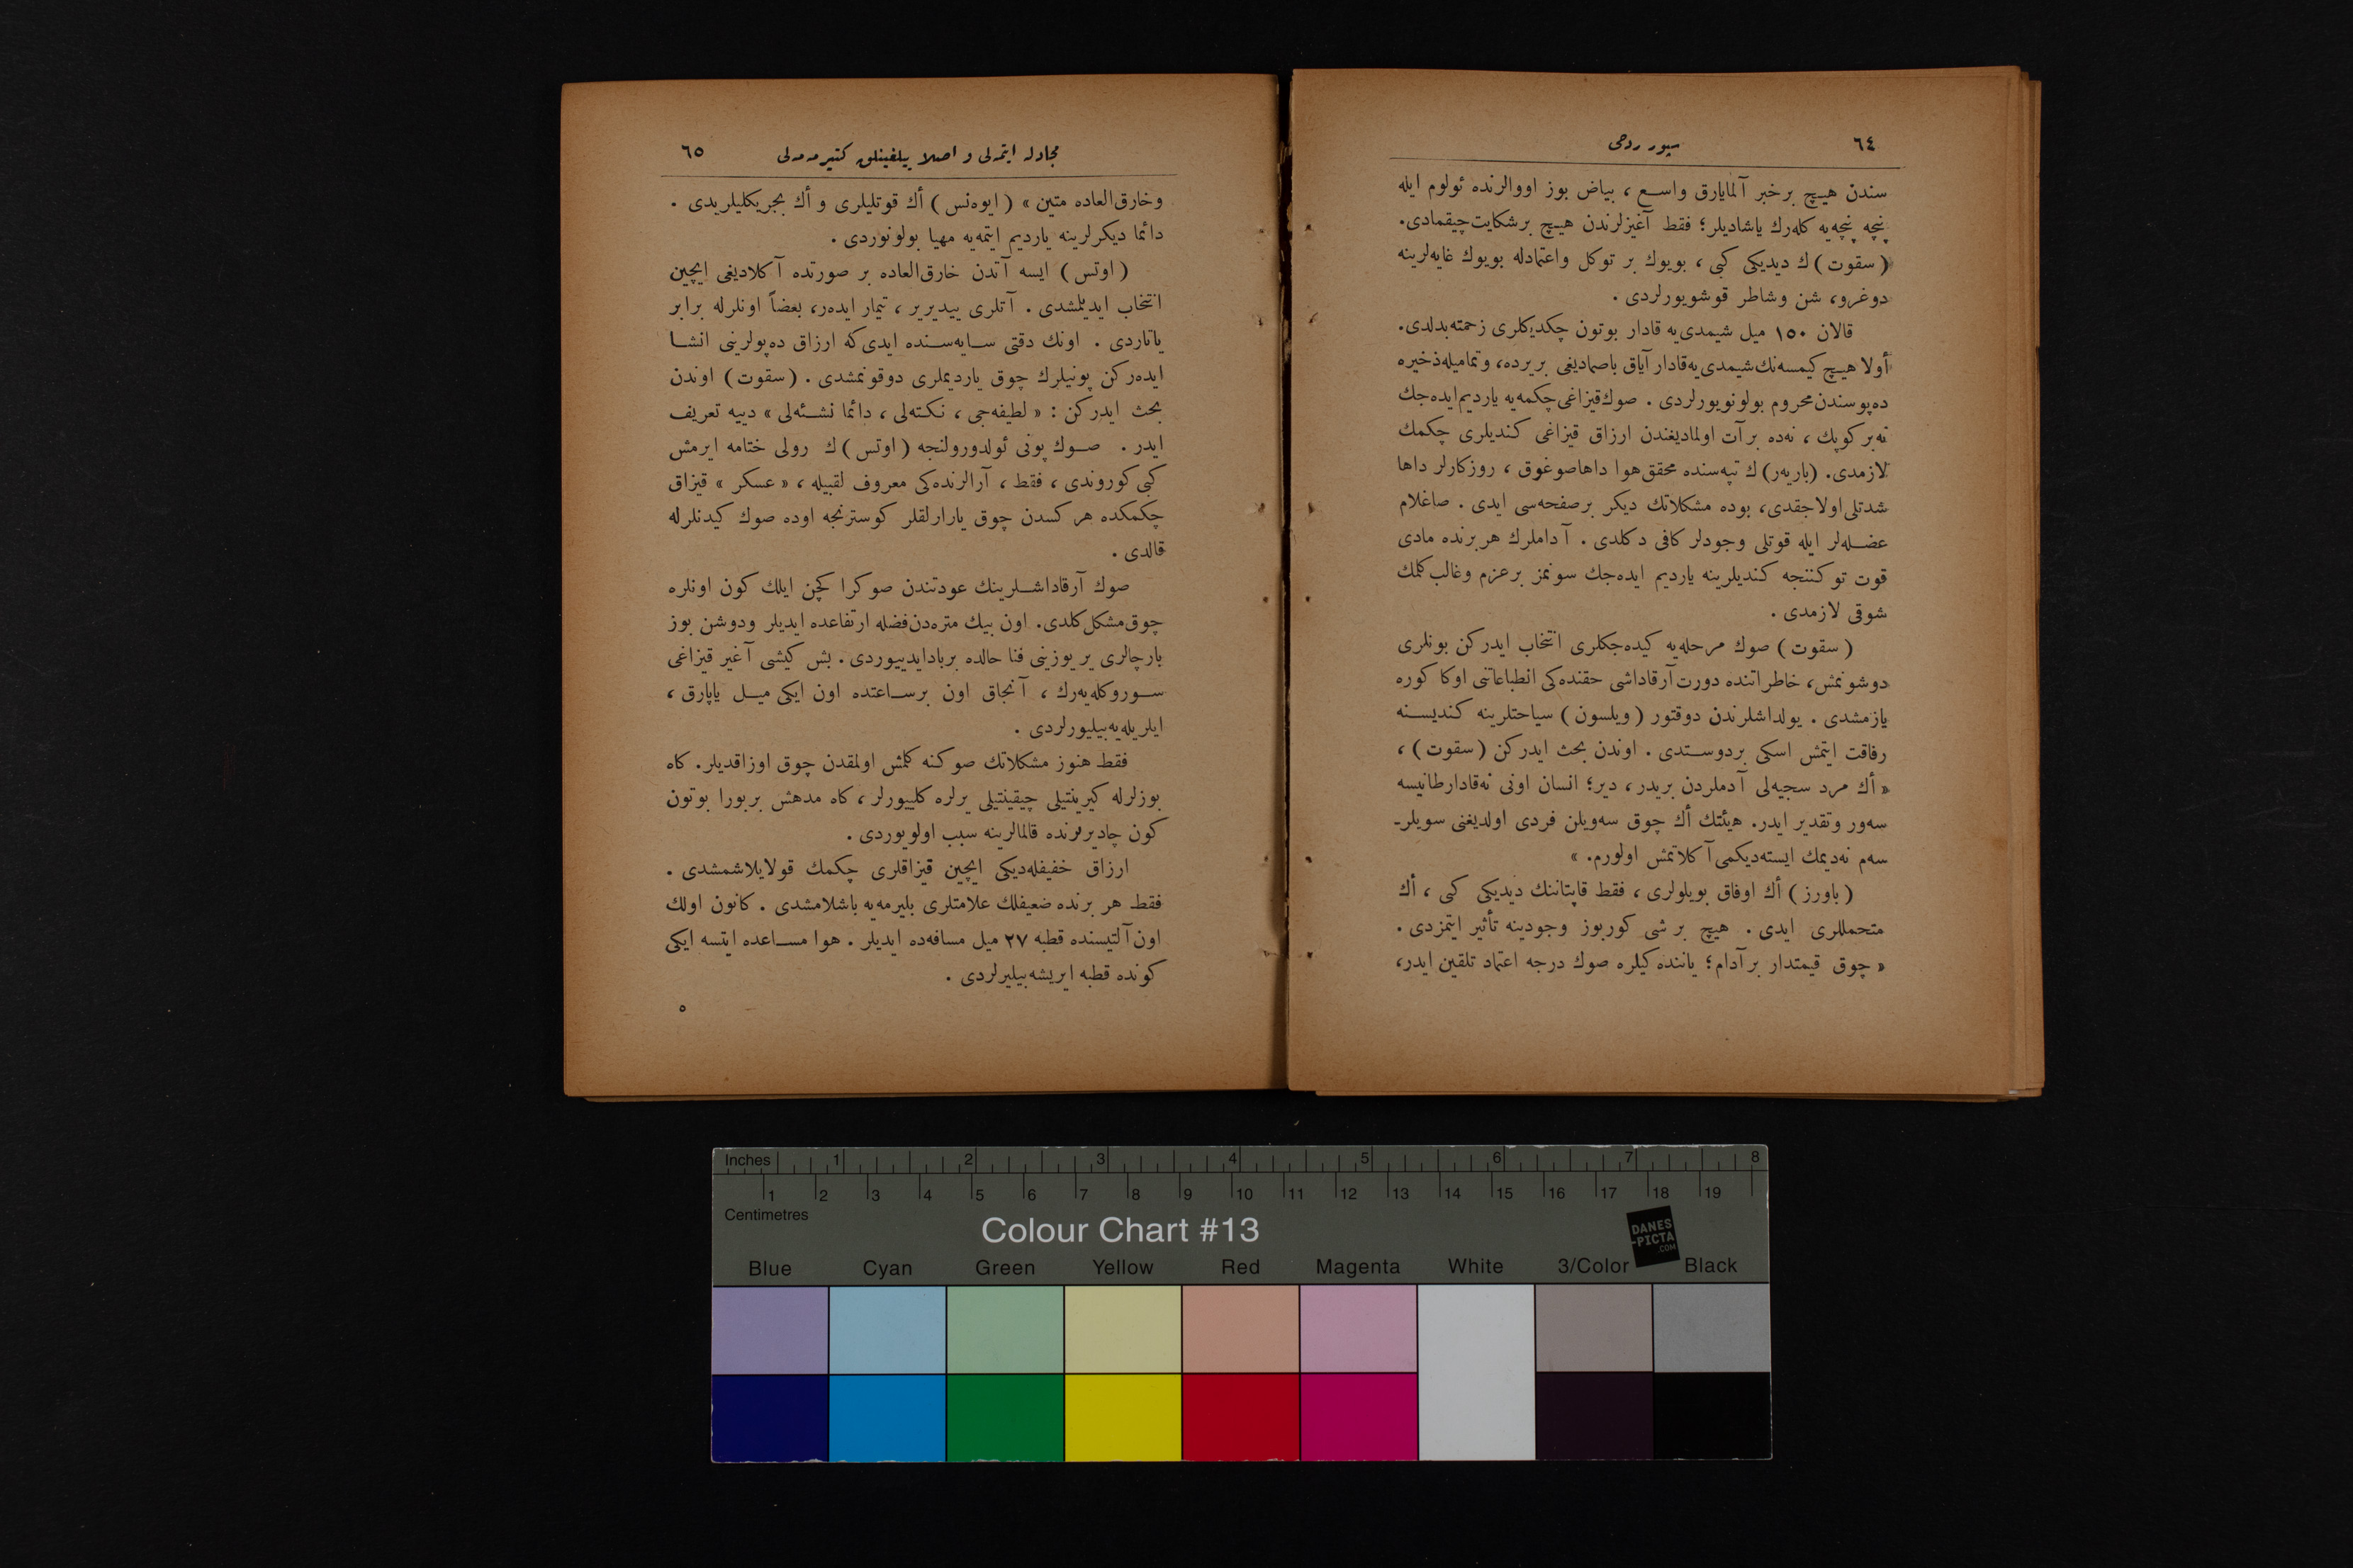 ٦٤
سپور روحی
سندن هیچ برخبر آلمایارق واسع ، بیاض بوز اووالرنده ئولوم ایله
پنچه پنچه‌یه کله‌رك یاشادیلر؛ فقط آغیزلرندن هیچ برشکایت‌چیقمادی.
( سقوت ) ك دیدیکی کبی ، بویوك بر توکل واعتمادله بویوك غایه‌لرینه
دوغرو، شن وشاطر قوشویورلردی .
قالان ١٥٠ میل شیمدی‌یه قادار بوتون چکدیکلری زحمته‌بدلدی.
أولا هیچ کیمسه‌نك‌شیمدی‌یه‌قادار آیاق باصمادیغی بریرده، وتمامیله‌ذخیره
ده‌پوسندن‌محروم بولونویورلردی . صوك‌قیزاغی‌چکمه‌یه یاردیم‌ایده‌جك
نه‌برکوپك ، نه‌ده برآت اولمادیغندن ارزاق قیزاغی کندیلری چکمك
لازمدی. (باریه‌ر) ك تپه‌سنده محقق‌هوا داهاصوغوق ، روزکارلر داها
شدتلی‌اولاجقدی، بوده مشکلاتك دیکر برصفحه‌سی ایدی . صاغلام
عضله‌لر ایله قوتلی وجودلر کافی دکلدی . آداملرك هربرنده مادی
قوت توکننجه کندیلرینه یاردیم ایده‌جك سونمز برعزم وغالب‌کلمك
شوقی لازمدی .
( سقوت ) صوك مرحله‌یه کیده‌جکلری انتخاب ایدرکن بونلری
دوشونمش، خاطراتنده دورت‌آرقاداشی حقنده‌کی انطباعاتنی اوکا کوره
یازمشدی . یولداشلرندن دوقتور ( ویلسون ) سیاحتلرینه کندیسنه
رفاقت ایتمش اسکی بردوستدی . اوندن بحث ایدرکن (سقوت) ،
« أك مرد سجیه‌لی آدملردن بریدر، دیر؛ انسان اونی نه‌قادارطانیسه
سه‌ور وتقدیر ایدر. هیئتك أك چوق سه‌ویلن فردی اولدیغنی سویلر-
سه‌م نه‌دیمك ایسته‌دیکمی‌آکلاتمش اولورم. »
( باورز ) أك اوفاق بویلولری ، فقط قاپتاننك دیدیکی کبی ، أك
متحمللری ایدی . هیچ بر شی کوربوز وجودینه تأثیر ایتمزدی .
« چوق قیمتدار برآدام؛ یاننده‌کیلره صوك درجه اعتماد تلقین ایدر،
مجادله ایتمه‌لی و اصلا ییلغینلق کتیرمه‌مه‌لی
٦٥
وخارق‌العاده متین » ( ایوه‌نس ) أك قوتلیلری و أك بجریکلیلریدی .
دائما دیکرلرینه یاردیم ایتمه‌یه مهیا بولونوردی .
( اوتس ) ایسه آتدن خارق‌العاده بر صورتده آکلادیغی ایچین
انتخاب ایدیلمشدی . آتلری ییدیریر ، تیمار ایده‌ر، بعضاً اونلرله برابر
یاتاردی . اونك دقتی سایه‌سنده ایدی‌که ارزاق ده‌پولرینی انشا
ایده‌رکن پونیلرك چوق یاردیملری دوقونمشدی . (سقوت) اوندن
بحث ایدرکن : « لطیفه‌جی ، نکته‌لی ، دائما نشئه‌لی » دییه تعریف
ایدر . صوك پونی ئولدورولنجه ( اوتس ) ك رولی ختامه ایرمش
کبی کوروندی ، فقط ، آرالرنده‌کی معروف لقبیله ، « عسکر » قیزاق
چکمکده هرکسدن چوق یارارلقلر کوسترنجه اوده صوك کیدنلرله
قالدی .
صوك آرقاداشلرینك عودتندن صوکرا کچن ایلك کون اونلره
چوق‌مشکل‌کلدی. اون بیك متره‌دن‌فضله ارتفاعده ایدیلر ودوشن بوز
بارچالری یریوزینی فنا حالده بربادایدییوردی . بش کیشی آغیر قیزاغی
سوروکله‌یه‌رك ، آنجاق اون برساعتده اون ایکی میل یاپارق ،
ایلریله‌یه‌بیلیورلردی .
فقط هنوز مشکلاتك صوکنه کلمش اولمقدن چوق اوزاقدیلر. کاه
بوزلرله کیرینتیلی چیقینتیلی یرلره کلییورلر ، کاه مدهش بربورا بوتون
کون چادیرلرنده قالمالرینه سبب اولویوردی .
ارزاق خفیفله‌دیکی ایچین قیزاقلری چکمك قولایلاشمشدی .
فقط هر برنده ضعیفلك علامتلری بلیرمه‌یه باشلامشدی . کانون اولك
اون‌آلتیسنده قطبه ٢٧ میل مسافه‌ده ایدیلر . هوا مساعده ایتسه ایکی
کونده قطبه ایریشه‌بیلیرلردی .
٥
Inches 1 2 3 4 5 6 7 8
1 2 3 4 5 6 7 8 9 10 11 12 13 14 15 16 17 18 19
Centimetres
Colour Chart #13
DANES
-PICTA
.COM
Blue Cyan Green Yellow Red Magenta White 3/Color Black